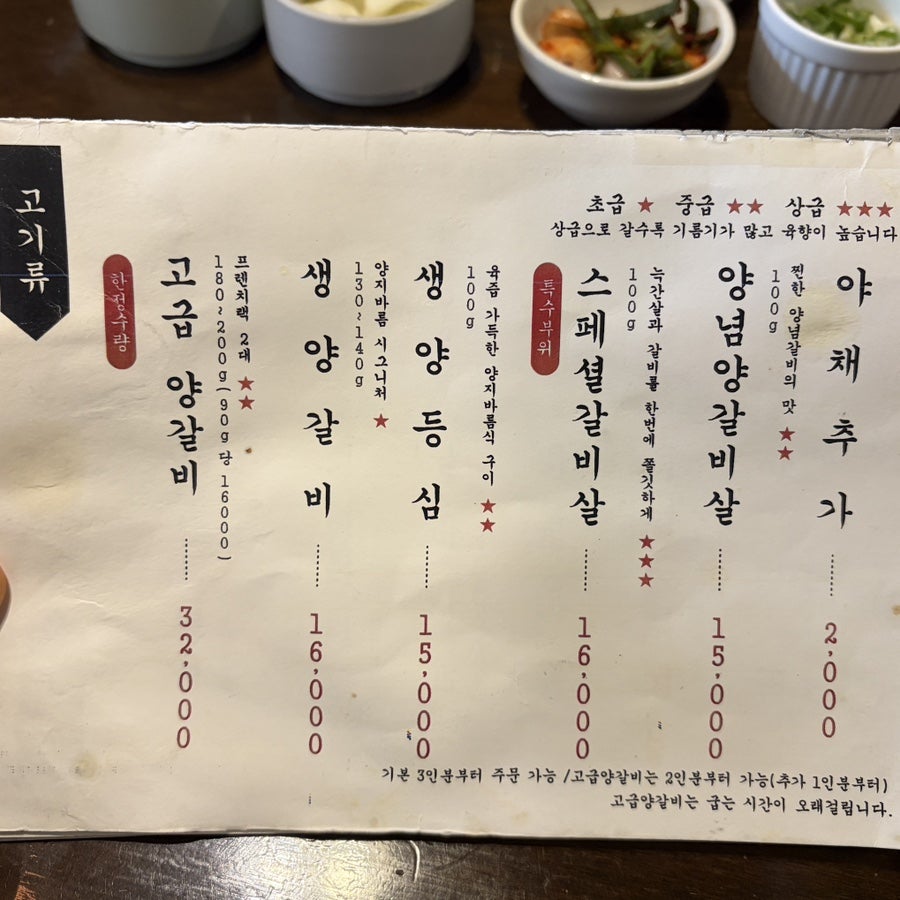 고기류
초급 ★ 중급 ★★ 상급 ★★★
상급으로 갈수록 기름기가 많고 육향이 높습니다
한정수량
고급 양갈비 ······ 32,000
프렌치랙 2대 ★★
180~200g(90g 당 16000)
생양갈비 ······ 16,000
양지바름 시그니처 ★
130~140g
생양등심 ······ 15,000
육즙 가득한 양지바름식 구이 ★★
100g
특수부위
스페셜갈비살 ······ 16,000
늑간살과 갈비를 한번에 쫄깃하게 ★★★
100g
양념양갈비살 ······ 15,000
찐한 양념갈비의 맛 ★★
100g
야채추가 ······ 2,000
기본 3인분부터 주문 가능 /고급양갈비는 2인분부터 가능(추가 1인분부터)
고급양갈비는 굽는 시간이 오래걸립니다.